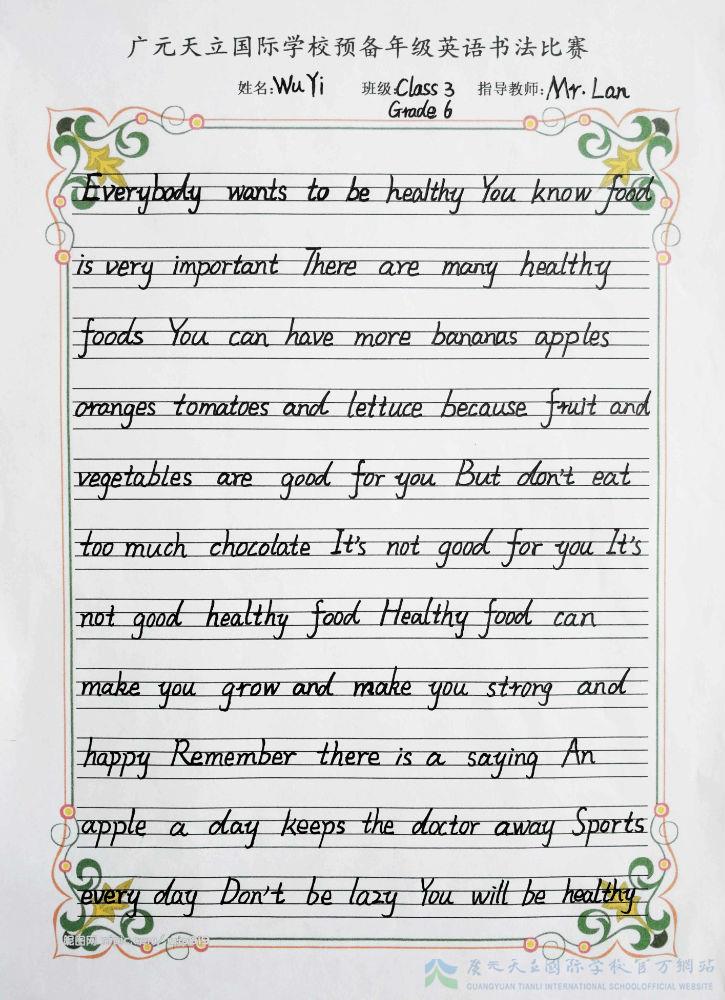 广元天立国际学校预备年级英语书法比赛
姓名:Wu Yi 班级:Class 3 指导教师:Mr. Lan
Grade 6
Everybody wants to be healthy You know food
is very important There are many healthy
foods You can have more bananas apples
oranges tomatoes and lettuce because fruit and
vegetables are good for you But don't eat
too much chocolate It's not good for you It's
not good healthy food Healthy food can
make you grow and make you strong and
happy Remember there is a saying An
apple a day keeps the doctor away Sports
every day Don't be lazy You will be healthy
昵图网
广元天立国际学校官方網站
GUANGYUAN TIANLI INTERNATIONAL SCHOOLOFFICIAL WEBSITE